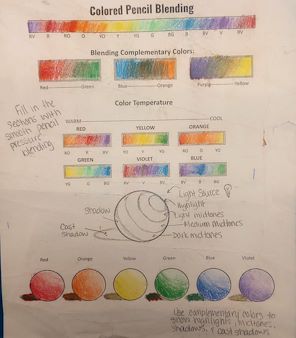 Colored Pencil Blending
RV R RO O YO Y YG G BG B BV V RV
Blending Complementary Colors:
Red Green Blue Orange Purple Yellow
Color Temperature
Fill in the
sections with
smooth pencil
pressure
blending
WARM COOL
RED YELLOW ORANGE
GREEN VIOLET BLUE
Light Source
Highlight
Light midtones
Medium Midtones
Dark midtones
Shadow
Cast
Shadow
Red Orange Yellow Green Blue Violet
Use complementary colors to
show highlights, midtones,
shadows, & cast shadows